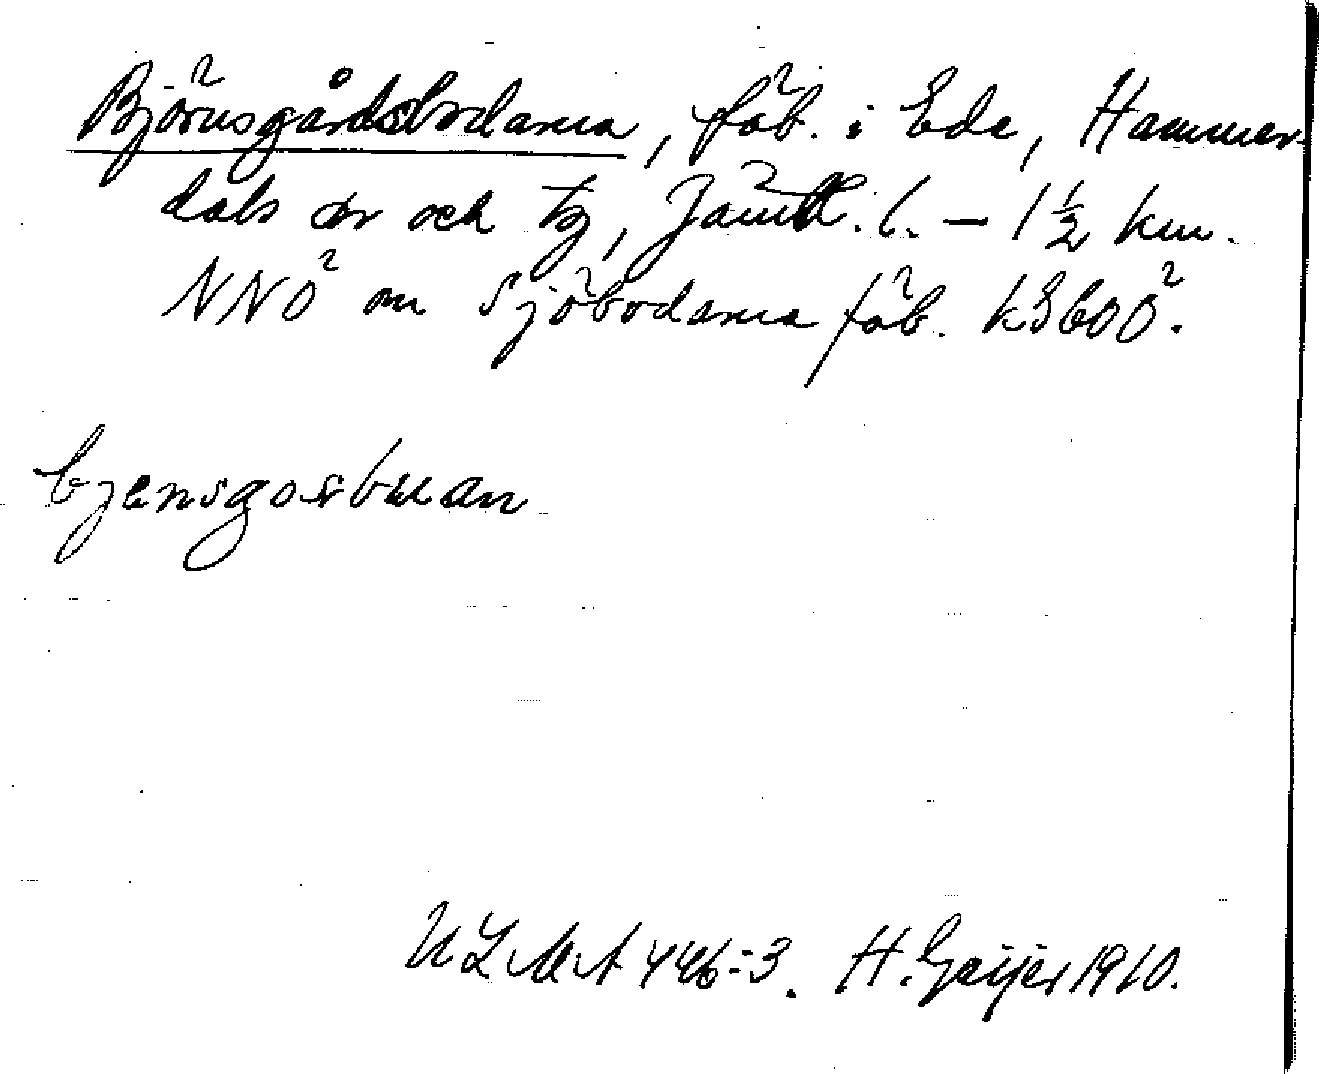 Björnsgårdsbodarna, fäb. i Ede, Hammer-
dals sn och tg, Jämtl. l. – 1 ½ km.
NNÖ om Sjöbodarna fäb. k3b0Ö.
bjensgosbuan
ULMA 446:3. H. Geijer 1910.